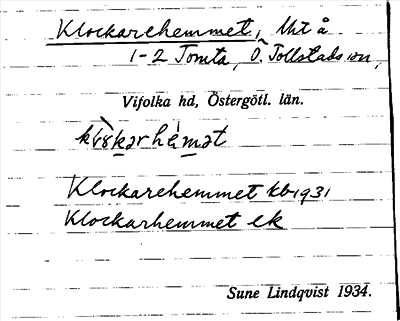 Klockarehemmet, lht å
1-2 Tomta, Ö. Tollstads sn,
Vifolka hd, Östergötl. län.
Klockarehemmet kb 1931
Klockarhemmet ek
Sune Lindqvist 1934.